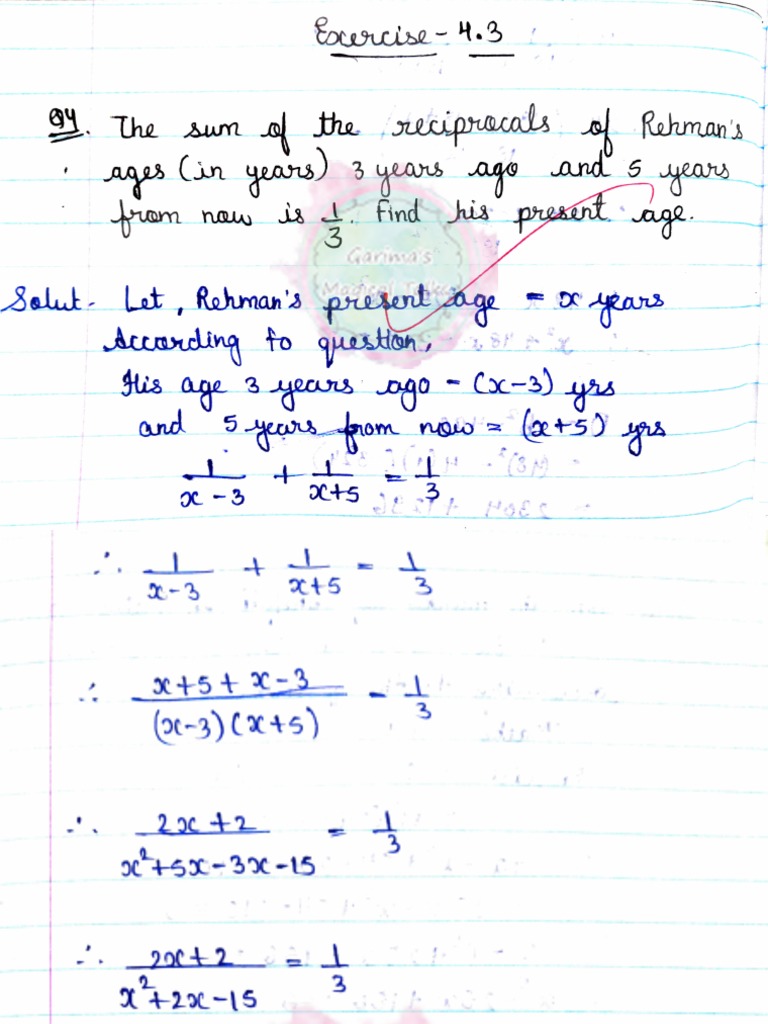 Exercise - 4.3
Q4. The sum of the reciprocals of Rehman's
ages (in years) 3 years ago and 5 years
from now is 1/3. Find his present age.
Garima's
Magical
Solut- Let, Rehman's present age = x years
According to question,
His age 3 years ago - (x-3) yrs
and 5 years from now = (x+5) yrs
1/(x-3) + 1/(x+5) = 1/3
∴ 1/(x-3) + 1/(x+5) = 1/3
∴ (x+5+x-3)/((x-3)(x+5)) - 1/3
∴ (2x+2)/(x²+5x-3x-15) = 1/3
∴ (2x+2)/(x²+2x-15) = 1/3